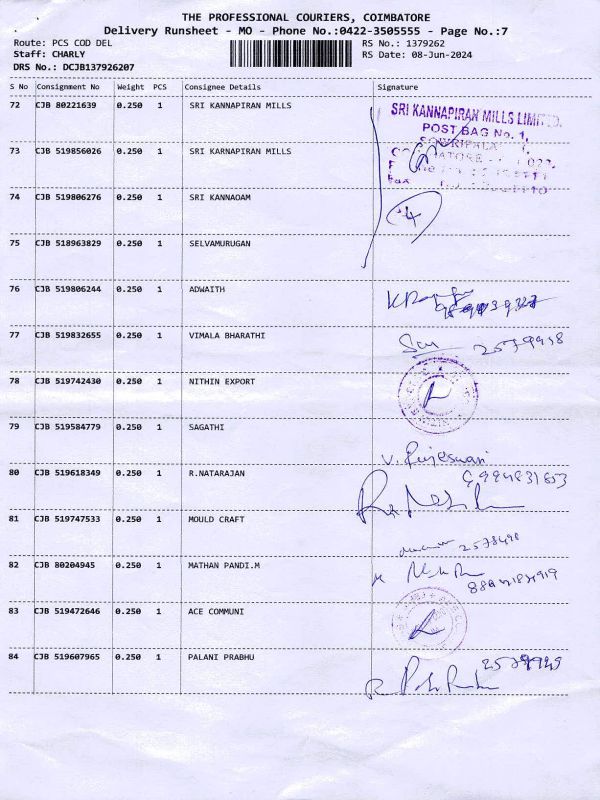 THE PROFESSIONAL COURIERS, COIMBATORE
Delivery Runsheet - MO - Phone No.:0422-3505555 - Page No.:7
Route: PCS COD DEL RS No.: 1379262
Staff: CHARLY RS Date: 08-Jun-2024
DRS No.: DCJB137926207
S No Consignment No Weight PCS Consignee Details Signature
72 CJB 80221639 0.250 1 SRI KANNAPIRAN MILLS
SRI KANNAPIRAN MILLS LIMITED.
POST BAG No. 1,
73 CJB 519856026 0.250 1 SRI KARNAPIRAN MILLS
74 CJB 519806276 0.250 1 SRI KANNAOAM
75 CJB 518963829 0.250 1 SELVAMURUGAN
76 CJB 519806244 0.250 1 ADWAITH
77 CJB 519832655 0.250 1 VIMALA BHARATHI
78 CJB 519742430 0.250 1 NITHIN EXPORT
79 CJB 519584779 0.250 1 SAGATHI
V. Rajeswari
80 CJB 519618349 0.250 1 R.NATARAJAN
81 CJB 519747533 0.250 1 MOULD CRAFT
82 CJB 80204945 0.250 1 MATHAN PANDI.M
83 CJB 519472646 0.250 1 ACE COMMUNI
84 CJB 519607965 0.250 1 PALANI PRABHU